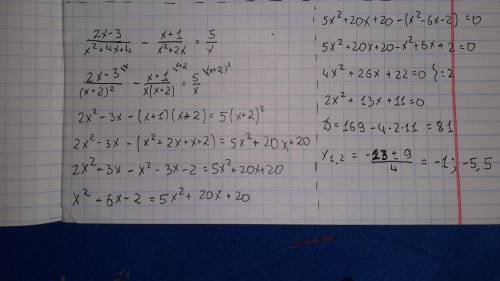 (2x-3)/(x²+4x+4) - (x+1)/(x²+2x) = 5/x
(2x-3)/(x+2)² \x - (x+1)/(x(x+2)) \x+2 = 5/x \(x+2)²
2x²-3x-(x+1)(x+2)=5(x+2)²
2x²-3x-(x²+2x+x+2)=5x²+20x+20
2x²-3x-x²-3x-2=5x²+20x+20
x²-6x-2=5x²+20x+20
5x²+20x+20-(x²-6x-2)=0
5x²+20x+20-x²+6x+2=0
4x²+26x+22=0 {:2
2x²+13x+11=0
D=169-4·2·11=81
x₁,₂ = (-13±9)/4 = -1; -5,5